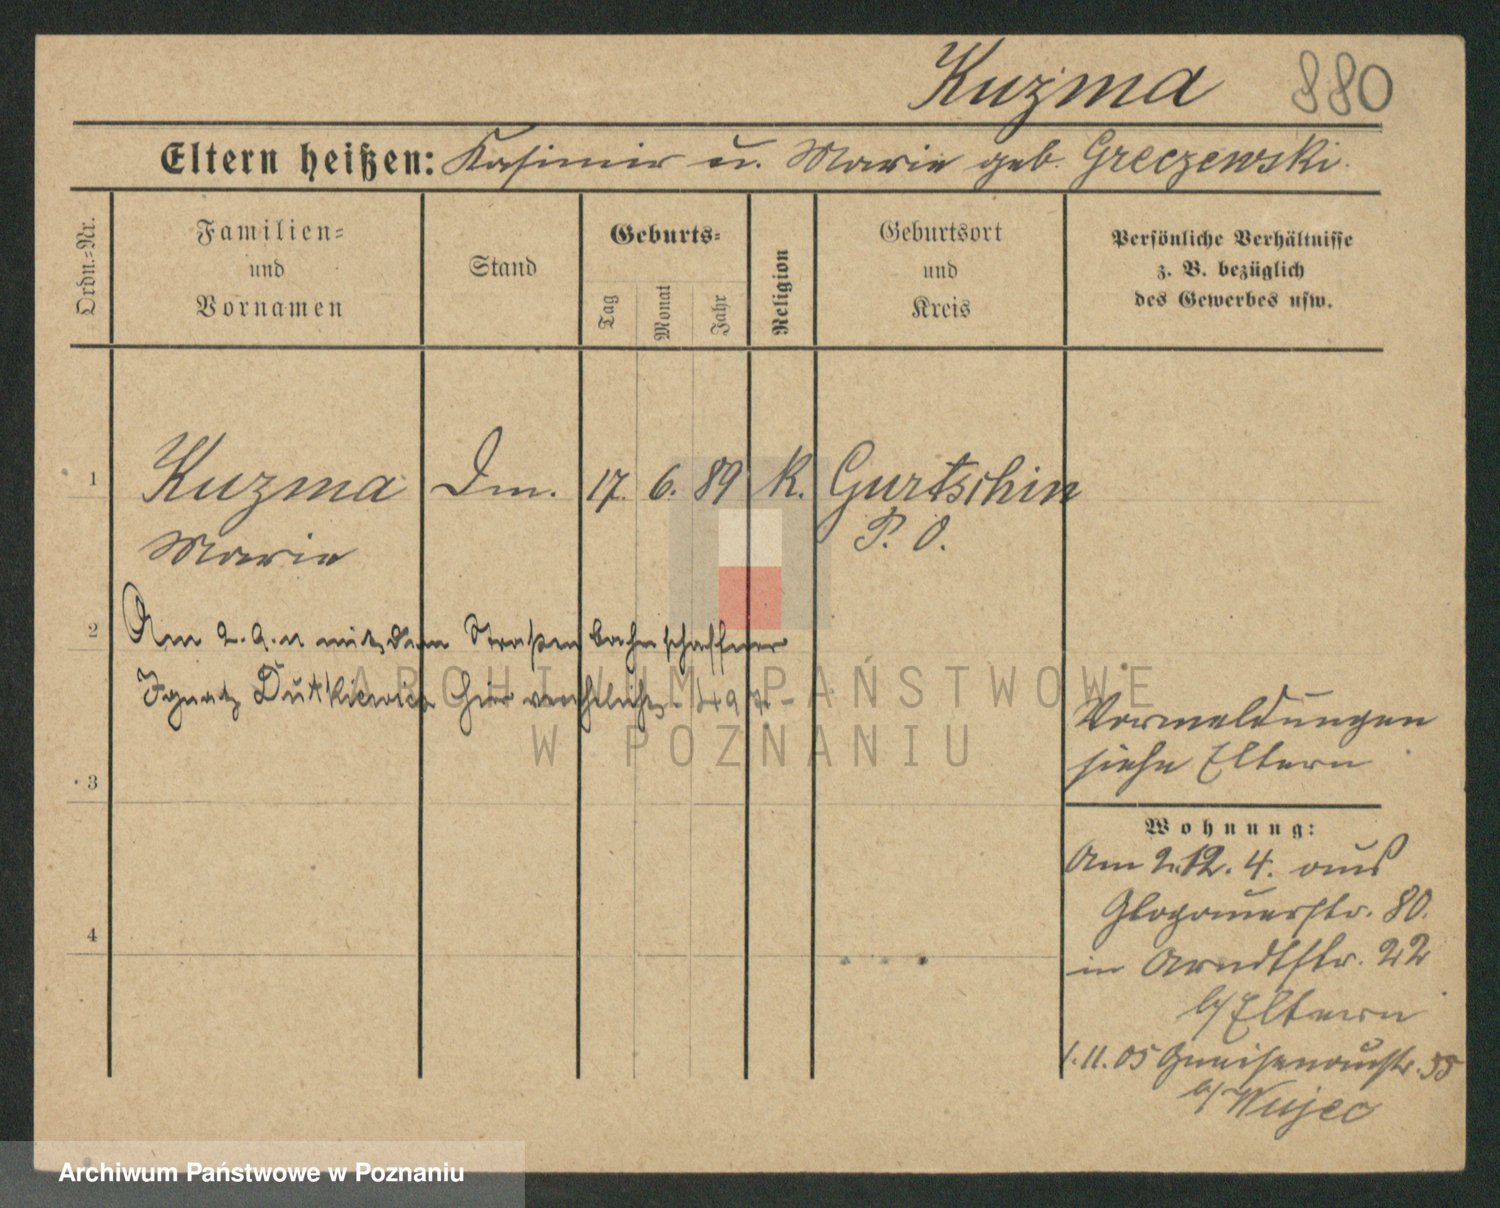 Kuzma 880
Eltern heißen: Kasimir u. Marie geb. Greczewski.
Ordn.-Nr.
Familien-
und
Vornamen
Stand
Geburts-
Tag
Monat
Jahr
Religion
Geburtsort
und
Kreis
Persönliche Verhältnisse
z. B. bezüglich
des Gewerbes usw.
1 Kuzma Dm. 17. 6. 89 K. Gurtschin
Marie P. O.
2 Am 2.9. mit dem Straßenbahnschaffner
Ignatz Dutkiewicz hier verehelicht
ARCHIWUM PAŃSTWOWE
W POZNANIU
Vormeldungen
siehe Eltern
3
Wohnung:
Am 2.12.4. aus
Glogauerstr. 80.
4
in Arndtstr. 22
b/ Eltern
1.11.05 Gneisenaustr. 55
b/ Wujec
Archiwum Państwowe w Poznaniu